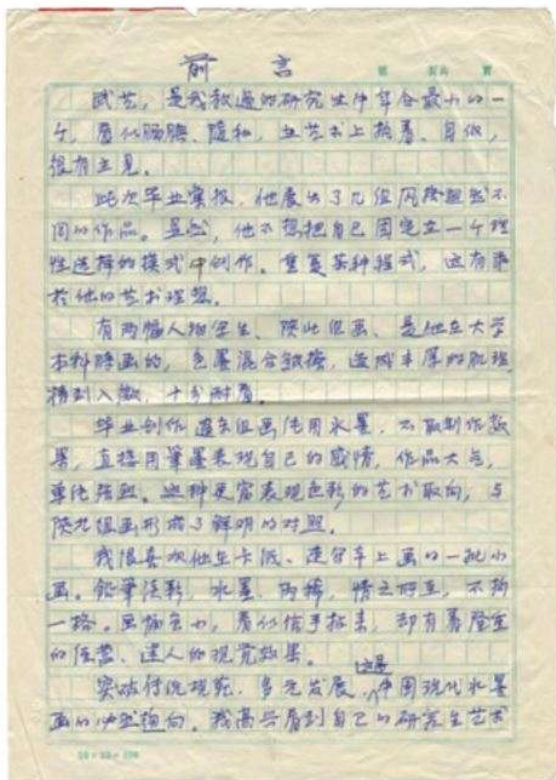 前言
號 頁 第
武艺,是我教过的研究生中年令最小的一
个,看似腼腆、随和,在艺术上执着、自信,
很有主见。
此次毕业汇报,他展出了几组风格迥然不
同的作品。显然,他不想把自己固定在一个理
性选择的模式中创作。重复某种程式,这有乖
于他的艺术理想。
有两幅人物写生、陕北组画、是他在大学
本科时画的,色墨混合皴擦,造成丰厚的肌理,
精到入微,十分耐看。
毕业创作 辽东组画使用水墨,不取制作效
果,直接用筆墨表现自己的感情,作品大气,
单纯强烈。这种更富表现色彩的艺术取向,与
陕北组画形成了鲜明的对照。
我很喜欢他在卡纸、速写本上画的一批小
画。铅筆淡彩、水墨、丙稀,情之所至,不拘
一格。画幅虽小,看似信手拈来,却有着隆重
的经营、迷人的视觉效果。
突破传统规范,多元发展,这是中国现代水墨
画的必然趋向。我高兴看到自己的研究生艺术